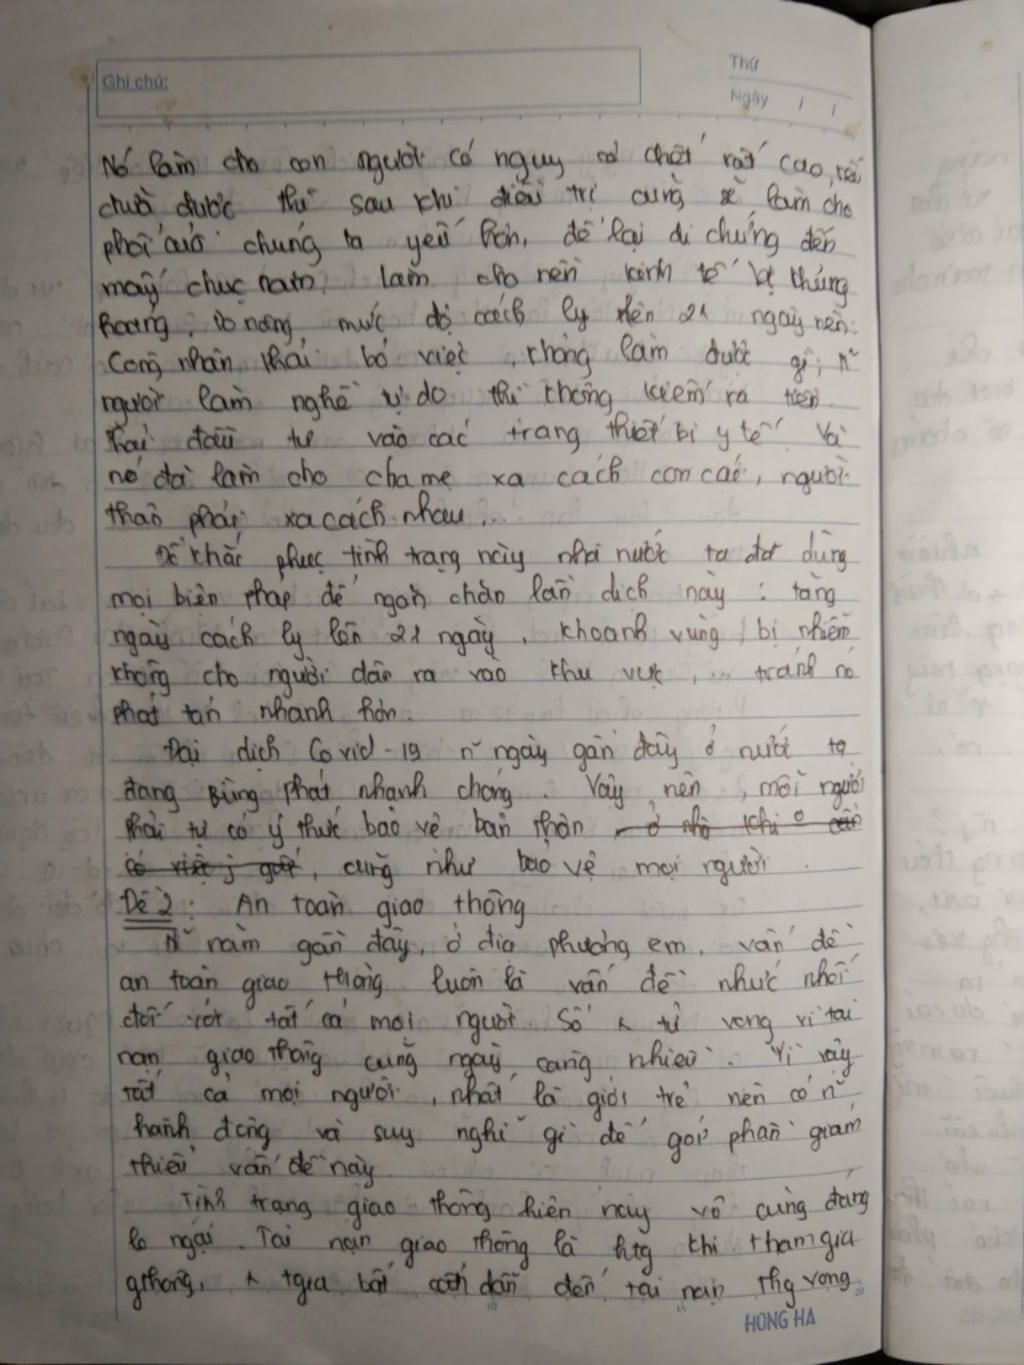 Ghi chú:
Thứ
Ngày / /
Nó làm cho con người có nguy cơ chết rất cao, nếu
chữa được thì sau khi điều trị cũng sẽ làm cho
phổi của chúng ta yếu hơn, để lại di chứng đến
mấy chục năm, làm cho nền kinh tế bị khủng
hoảng. Do nâng mức độ cách ly lên 21 ngày nên:
Công nhân phải bỏ việc, không làm được gì; n~
người làm nghề tự do thì không kiếm ra tiền.
Phải đầu tư vào các trang thiết bị y tế. Và
nó đã làm cho cha mẹ xa cách con cái, người
thân phải xa cách nhau,...
Để khắc phục tình trạng này nhà nước ta đã dùng
mọi biện pháp để ngăn chặn lần dịch này: tăng
ngày cách ly lên 21 ngày, khoanh vùng bị nhiễm
không cho người dân ra vào khu vực,... tránh nó
phát tán nhanh hơn.
Đại dịch Covid-19 n~ ngày gần đây ở nước ta
đang bùng phát nhanh chóng. Vậy nên, mỗi người
phải tự có ý thức bảo vệ bản thân
, cũng như bảo vệ mọi người.
Đề 2: An toàn giao thông
N~ năm gần đây, ở địa phương em, vấn đề
an toàn giao thông luôn là vấn đề nhức nhối
đối với tất cả mọi người. Số tử vong vì tai
nạn giao thông cũng ngày càng nhiều. Vì vậy
tất cả mọi người, nhất là giới trẻ nên có n~
hành động và suy nghĩ gì để góp phần giảm
thiểu vấn đề này.
Tình trạng giao thông hiện nay vô cùng đáng
lo ngại. Tai nạn giao thông là khi tham gia
gthông, tgia bất cẩn dẫn đến tai nạn thg vong
HONG HA